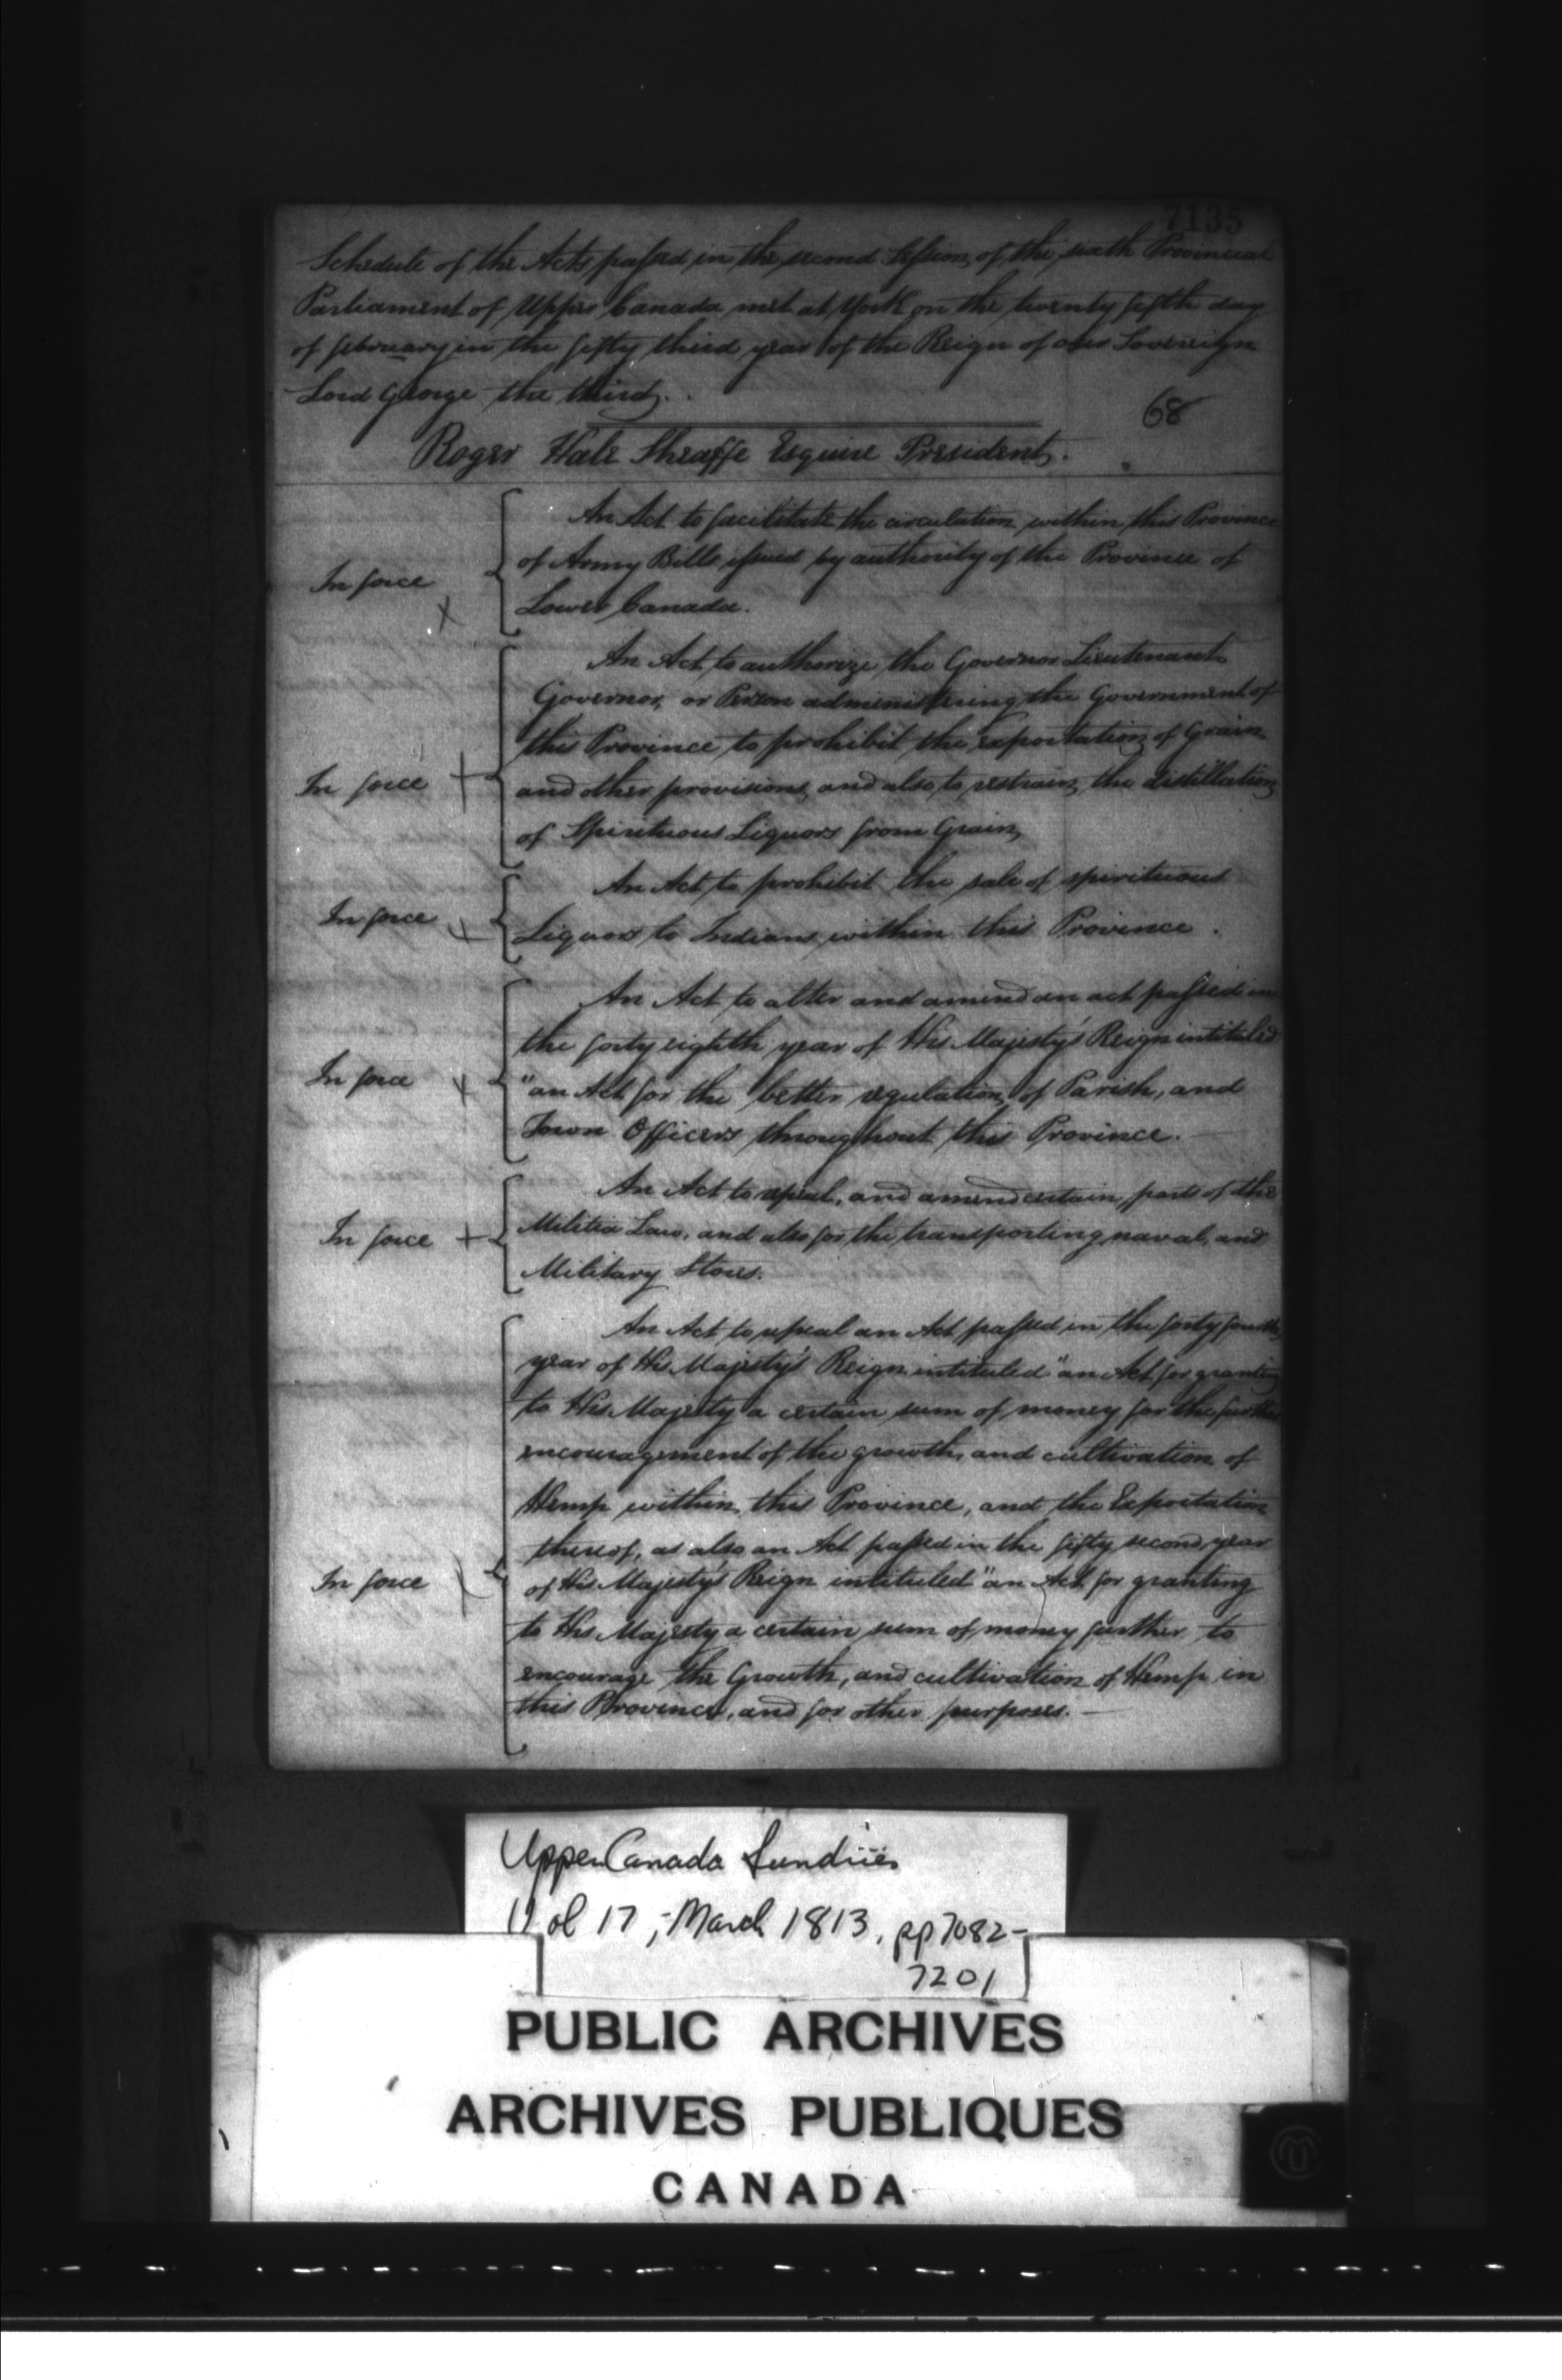 7135
Schedule of the Acts passed in the second Session of the sixth Provincial
Parliament of Upper Canada met at York on the twenty fifth day
of february in the fifty third year of the Reign of our Sovereign
Lord George the third.
68
Roger Hale Sheaffe Esquire President.
An Act to facilitate the circulation within this Province
of Army Bills issued by authority of the Province of
In force
Lower Canada.
An Act to authorize the Governor Lieutenant
Governor, or Person administering the Government of
this Province to prohibit the exportation of Grain
In force
and other provisions, and also to restrain the distillation
of Spirituous Liquors from Grain,
An Act to prohibit the sale of spirituous
In force
Liquors to Indians within this Province.
An Act to alter and amend an act passed in
the forty eighth year of His Majesty's Reign intituled
In force
"an Act for the better regulation of Parish, and
Town Officers throughout this Province.
An Act to repeal, and amend certain parts of the
In force
Militia Law, and also for the transporting naval, and
Military Stores.
An Act to repeal an Act passed in the forty fourth
year of His Majesty's Reign intituled "an Act for granting
to His Majesty a certain sum of money for the further
encouragement of the growth, and cultivation of
Hemp within this Province, and the Exportation
thereof, as also an Act passed in the fifty second year
In force
of His Majesty's Reign intituled "an Act for granting
to His Majesty a certain sum of money further to
encourage the Growth, and cultivation of Hemp in
this Province, and for other purposes.
Upper Canada Sundries
Vol 17, March 1813, pp 7082-
7201
PUBLIC ARCHIVES
ARCHIVES PUBLIQUES
CANADA